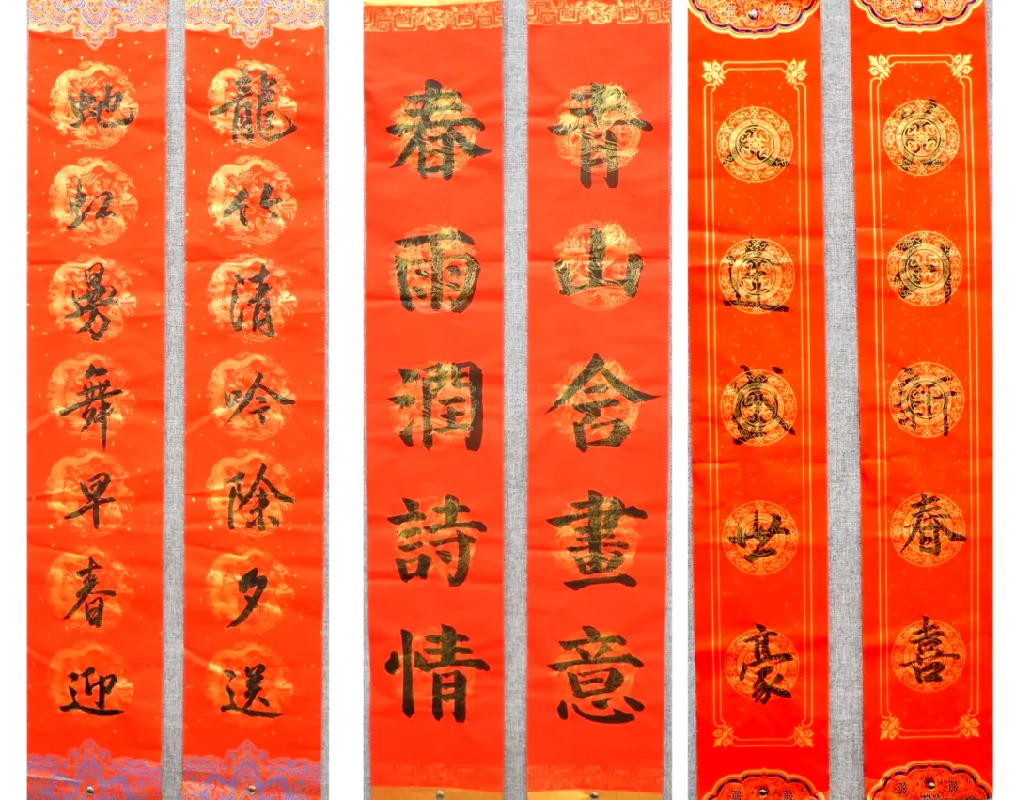 春喜
世豪
青山含畫意
春雨潤詩情
龍竹清吟除夕送
蛇虹曼舞早春迎